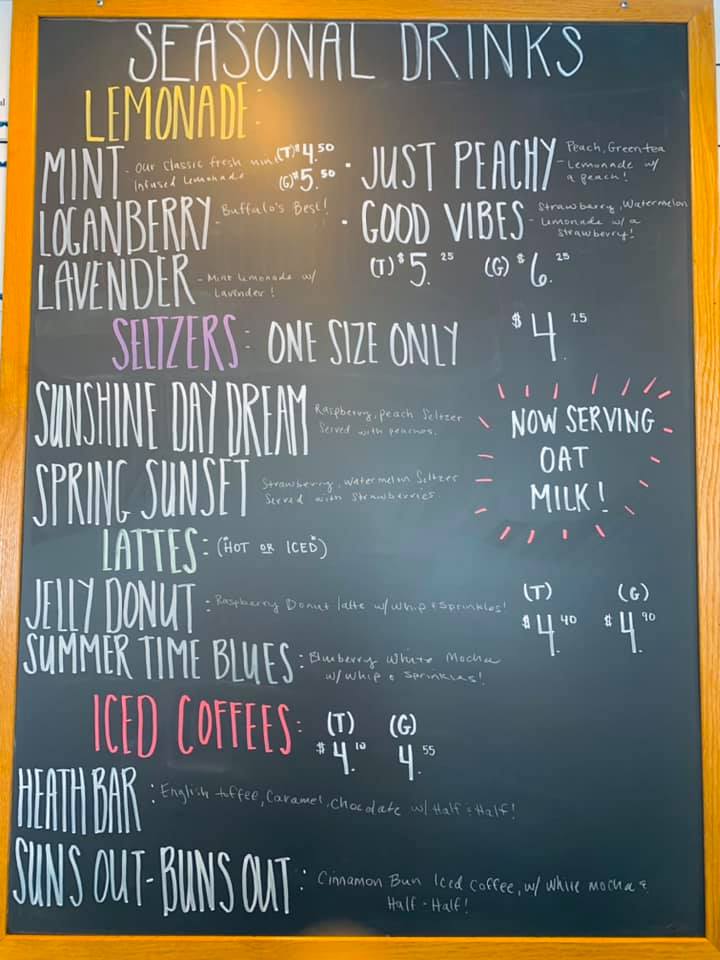 SEASONAL DRINKS
LEMONADE:
MINT - Our Classic fresh mint Infused Lemonade (T) $4.50
(G) $5.50
LOGANBERRY - Buffalo's Best!
LAVENDER - Mint Lemonade w/ Lavender!
• JUST PEACHY - Peach, Green tea Lemonade w/ a peach!
• GOOD VIBES - Strawberry, Watermelon Lemonade w/ a Strawberry!
(T) $5.25 (G) $6.25
SELTZERS: ONE SIZE ONLY $4.25
SUNSHINE DAY DREAM Raspberry, peach Seltzer
Served with peaches.
SPRING SUNSET Strawberry, Watermelon Seltzer
Served with Strawberries
NOW SERVING
OAT
MILK!
LATTES: ("HOT OR ICED")
JELLY DONUT: Raspberry Donut latte w/ whip & Sprinkles!
SUMMER TIME BLUES: Blueberry White Mocha
w/ whip & Sprinkles!
(T) (G)
$4.40 $4.90
ICED COFFEES: (T) (G)
$4.10 4.55
HEATH BAR: English toffee, Caramel, Chocolate w/ Half & Half!
SUNS OUT-BUNS OUT: Cinnamon Bun Iced Coffee, w/ White mocha &
Half - Half!